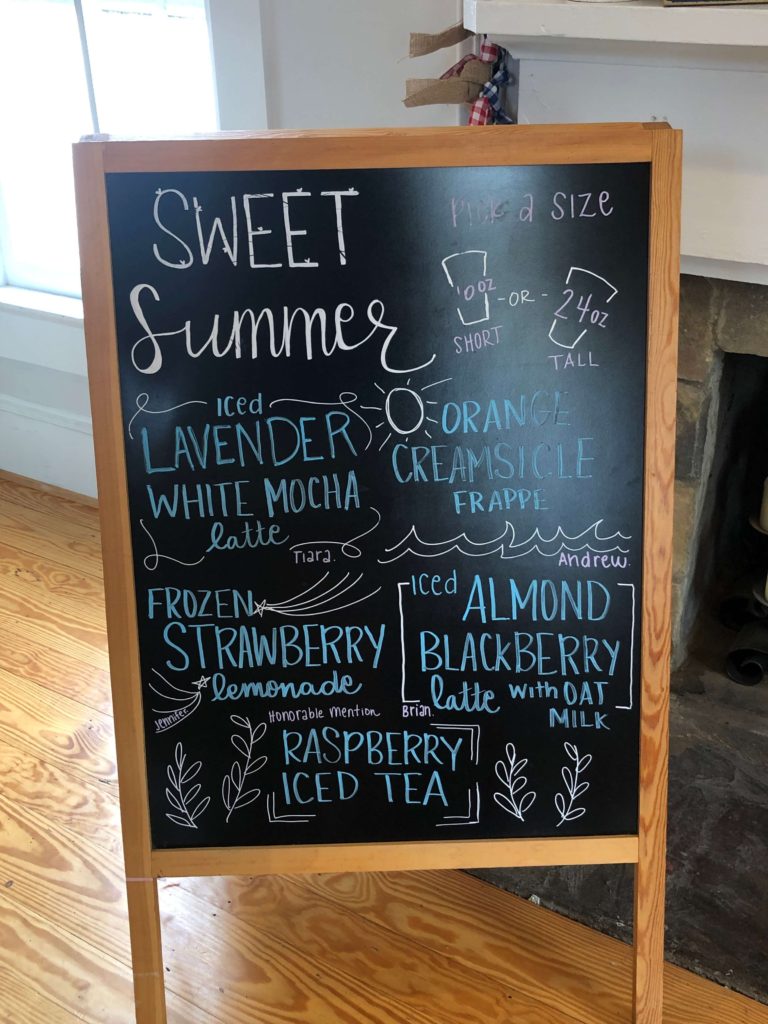 SWEET
Summer
Pick a SIZE
OZ -OR- 24oz
SHORT
TALL
ICED
LAVENDER
WHITE MOCHA
latte
Tiara.
ORANGE
CREAMSICLE
FRAPPE
Andrew.
FROZEN
STRAWBERRY
lemonade
Jennifer
ICED ALMOND
BLACKBERRY
latte with OAT
MILK
Brian.
Honorable Mention
RASPBERRY
ICED TEA